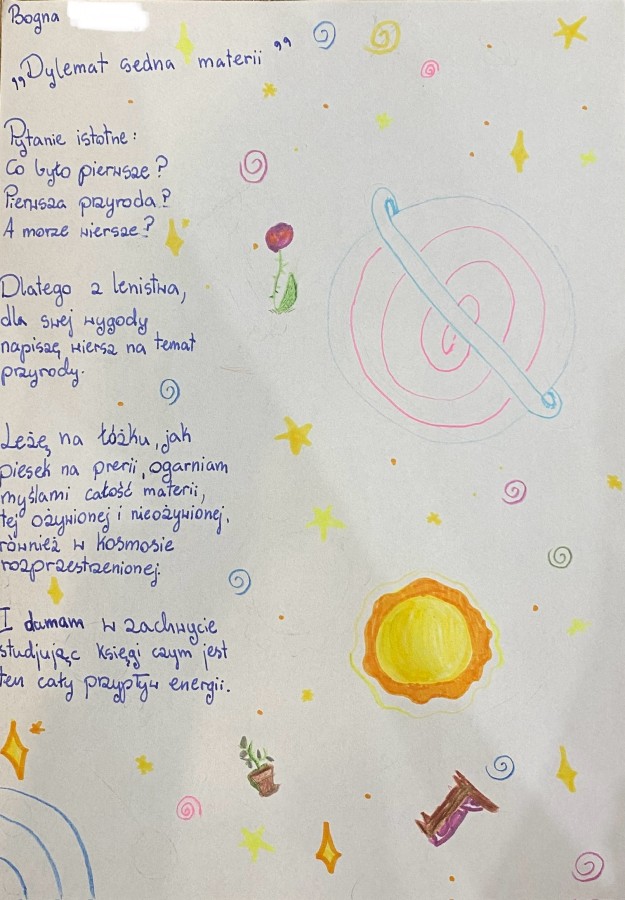 Bogna
,,Dylemat sedna materii"
Pytanie istotne:
Co było pierwsze?
Pierwsza przyroda?
A może wiersze?
Dlatego z lenistwa,
dla swej wygody
napiszę wiersz na temat
przyrody.
Leżę na łóżku, jak
piesek na prerii, ogarniam
myślami całość materii,
tej ożywionej i nieożywionej,
również w kosmosie
rozprzestrzenionej.
I dumam w zachwycie
studjując księgi czym jest
ten cały przypływ energii.